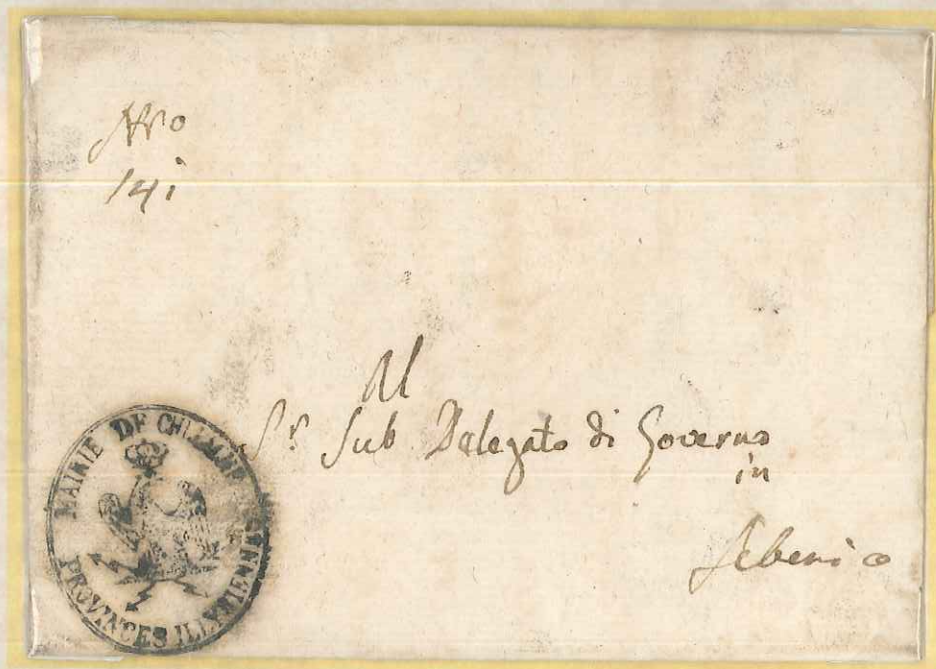 Nro
141
Al
Sr. Sub Delegato di Governo
in
Sebenico
MAIRIE DE
PROVINCES ILLYRIENNES